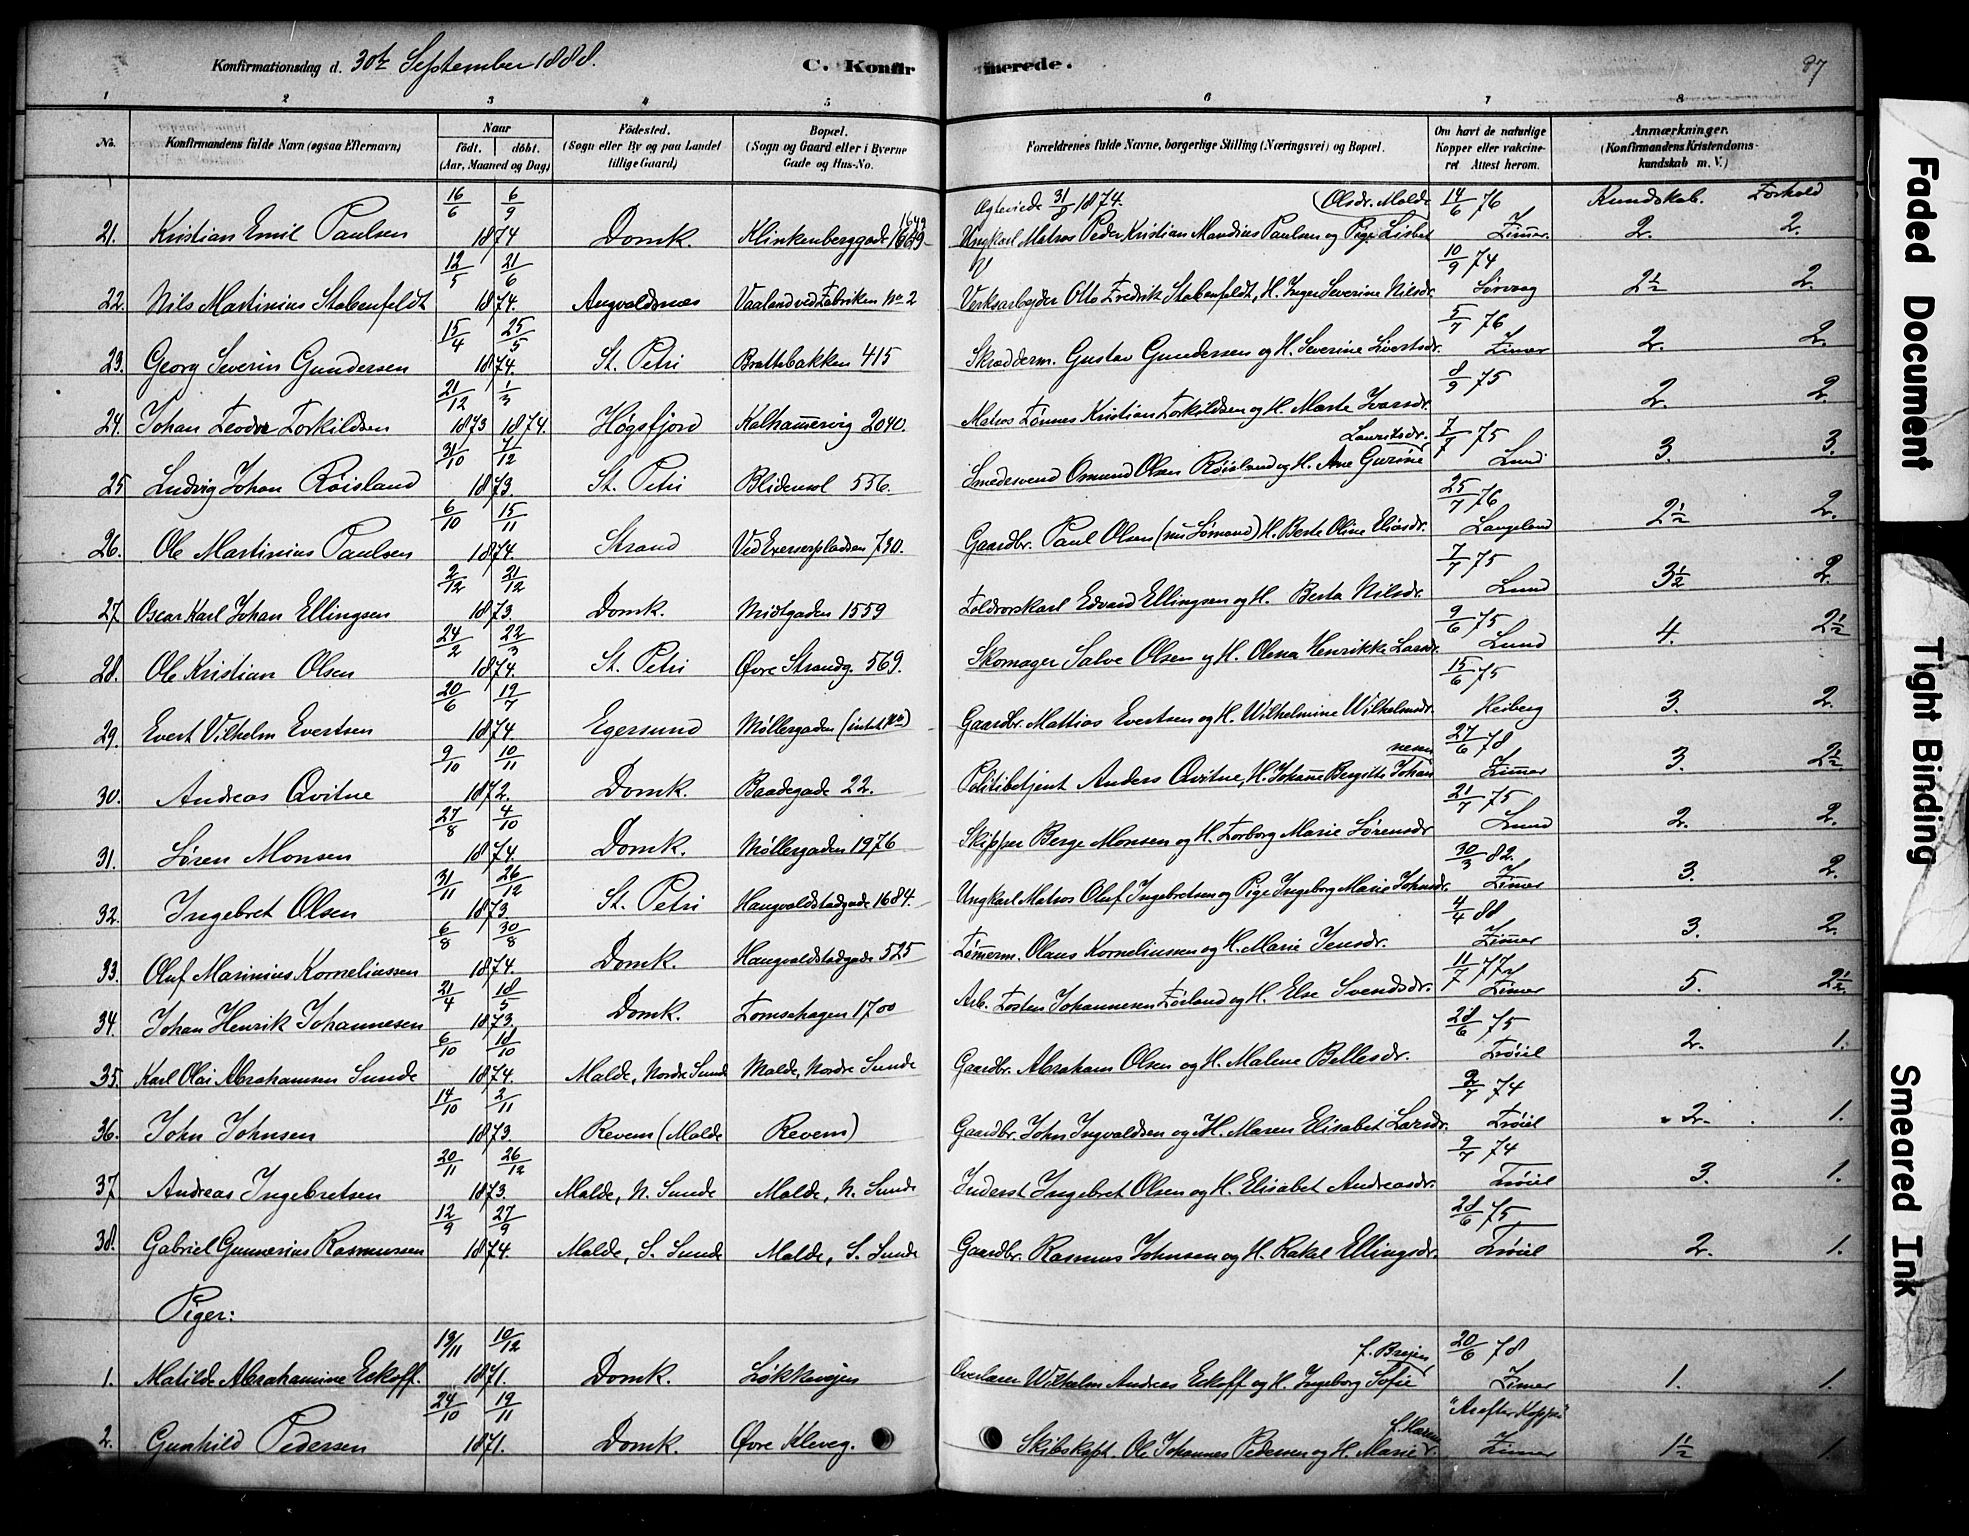 Konfirmationsdag d. 30te September 1888. C. Konfirmerede. 87
1 2 3 4 5 6 7 8
No. Konfirmandens fulde Navn (ogsaa Efternavn) Naar født. døbt. (Aar, Maaned og Dag) Fødested. (Sogn eller By og paa Landet tillige Gaard) Bopæl. (Sogn og Gaard eller i Byerne Gade og Hus-No. Forældrenes fulde Navne, borgerlige Stilling (Næringsvei) og Bopæl. Om havt de naturlige Kopper eller vakcineret Attest herom. Anmærkninger. (Konfirmandens Kristendomskundskab m. V.)
Kundskab. Forhold
16/6 6/9 Ægteviede 31/8 1874. Olsdr. Molde 14/6 76
21. Kristian Emil Paulsen 1874 Domk. Klinkenberggade Ungkarl Matros Peder Kristian Mandius Paulsen og Pige Lisbet Zimmer. 2. 2.
12/5 21/6 10/9 74
22. Nils Martinius Stabenfeldt 1874. Augvaldsnæs Vaaland ved Fabriken No 2 Verksarbejder Otto Fredrik Stabenfeldt, H. Inger Severine Nilsdr. Sørvaag 2½ 2.
15/4 25/5 5/7 76
23. Georg Severin Gundersen 1874. St. Petri Brattebakken 415 Skrædderm. Gustav Gundersen og H. Severine Sivertsdr. Zimer 2. 2.
21/12 1/3 8/9 75
24. Johan Teodor Torkildsen 1873 1874. Høgsfjord Kalhamervig 2040. Matros Tønnes Kristian Torkildsen og H. Marte Ivarsdr. 2. 2.
31/10 7/12 Lauritsdr. 7/7 75
25 Ludvig Johan Røisland 1873. St. Petri Blidensol 536. Smedesvend Osmund Olsen Røisland og H. Ane Gurine Lund 3. 3.
6/10 15/11 25/7 76
26. Ole Martinius Paulsen 1874. Strand Ved Exerserpladsen 730. Gaardbr. Paul Olsen (nu Sømand) H. Berte Oline Eliasdr. Langeland 2½ 2.
2/12 21/12 7/7 75
27. Oscar Karl Johan Ellingsen 1873. Domk. Midtgaden 1559 Toldrorskarl Edvard Ellingsen og H. Berta Nilsdr. Lund 3½ 2
24/2 22/3 9/6 75
28. Ole Kristian Olsen 1874. St. Petri Øvre Strandg. 569. Skomager Salve Olsen og H. Olena Henrikke Larsdr. Lund 4. 2½
20/6 19/7 15/6 75
29. Evert Vilhelm Evertsen 1874. Egersund Møllergaden (intet No) Gaardbr. Mattias Evertsen og H. Wilhelmine Wilhelmsdr. Heiberg 3. 2.
9/10 10/11 nesen 27/6 78
30. Andreas Qvitne 1872. Domk. Baadegade 22. Politibetjent Anders Qvitne, H. Johanne Bergitte Johan Zimer 3. 2½.
27/8 4/10 21/7 75
31. Søren Monsen 1874. Domk. Møllergaden 1976 Skipper Berge Monsen og H. Torborg Marie Sørensdr Lund 2. 2.
31/11 26/12 30/3 82.
32. Ingebret Olsen 1873. St. Petri Haugvaldstadgade 1684. Ungkarl Matros Oluf Ingebretsen og Pige Ingeborg Marie Johnsdr. Zimer 3. 2.
6/8 30/8 4/4 88
33. Oluf Marinius Korneliussen 1874. Domk. Haugvaldstadgade 525 Tømerm. Olaus Korneliussen og H. Marie Jensdr. Zimer 3. 2.
21/4 18/5 11/7 77
34. Johan Henrik Johannesen 1873. Domk. Tomsehagen 1700 Arb. Tosten Johannesen Tørland og H. Else Svendsdr. Zimer 5. 2½.
6/10 18/10 28/6 75
35. Karl Olai Abrahamsen Sunde 1874. Malde, Nordre Sunde Malde, Nordre Sunde Gaardbr. Abraham Olsen og H. Malene Bellesdr. Trøiel 2. 1.
14/10 2/11 9/7 74
36. John Johnsen 1873. Revem (Malde Revem) Gaardbr. John Ingvaldsen og H. Maren Elisabet Larsdr. Trøiel 2. 1.
20/11 26/12 9/7 74
37 Andreas Ingebretsen 1873. Malde, N. Sunde Malde, N. Sunde Inderst Ingebret Olsen og H. Elisabet Andreasdr. Trøiel 3. 1.
12/9 27/9 28/6 75
38. Gabriel Gunnerius Rasmussen 1874. Malde, S. Sunde Malde, S. Sunde Gaardbr. Rasmus Johnsen og H. Rakel Ellingsdr. Trøiel 2. 1.
Piger:
19/11 10/12 f. Brejen 20/6 78
1. Matilde Abrahamine Eckoff. 1871. Domk. Løkkevejen Overlærer Wilhelm Andreas Eckoff og H. Ingeborg Sofie Zimer 1. 1.
24/10 19/11 "Ar efter Kopper"
2. Gunhild Pedersen 1871. Domk. Øvre Kleveg. Skibskapt. Ole Johannes Pedersen og H. Marie Zimer 1½ 1.
Faded Document
Tight Binding
Smeared Ink